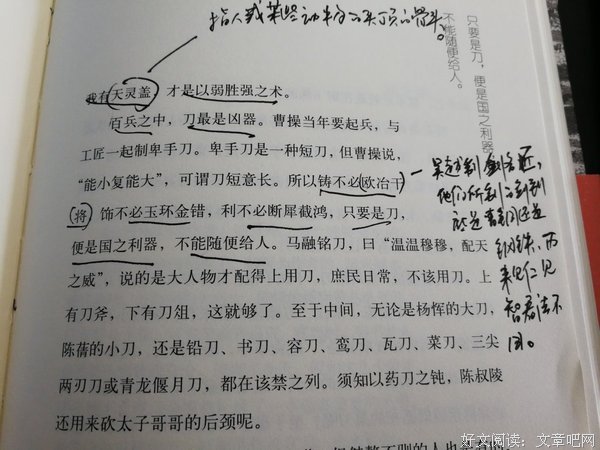 指人或某些动物的头顶的骨头。
只要是刀，便是国之利器
不能随便给人。
我有天灵盖 才是以弱胜强之术。
百兵之中，刀最是凶器。曹操当年要起兵，与
工匠一起制卑手刀。卑手刀是一种短刀，但曹操说，
“能小复能大”，可谓刀短意长。所以铸不必欧冶干
将 饰不必玉环金错，利不必断犀截鸿，只要是刀，
便是国之利器，不能随便给人。马融铭刀，曰“温温穆穆，配天
之威”，说的是大人物才配得上用刀，庶民日常，不该用刀。上
有刀斧，下有刀俎，这就够了。至于中间，无论是杨恽的大刀，
陈蒨的小刀，还是铅刀、书刀、容刀、鸾刀、瓦刀、菜刀、三尖
两刃刀或青龙偃月刀，都在该禁之列。须知以药刀之钝，陈叔陵
还用来砍太子哥哥的后颈呢。
他们所
还是
钢铁
仁见
智看法不
同。
好文阅读：文章吧网